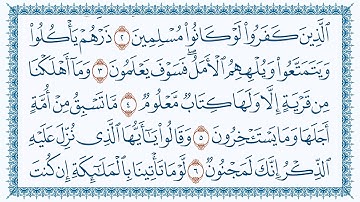 ٱلَّذِينَ كَفَرُوا۟ لَوْ كَانُوا۟ مُسْلِمِينَ ٢ ذَرْهُمْ يَأْكُلُوا۟
وَيَتَمَتَّعُوا۟ وَيُلْهِهِمُ ٱلْأَمَلُ ۖ فَسَوْفَ يَعْلَمُونَ ٣ وَمَآ أَهْلَكْنَا
مِن قَرْيَةٍ إِلَّا وَلَهَا كِتَابٌ مَّعْلُومٌ ٤ مَّا تَسْبِقُ مِنْ أُمَّةٍ
أَجَلَهَا وَمَا يَسْتَـْٔخِرُونَ ٥ وَقَالُوا۟ يَـٰٓأَيُّهَا ٱلَّذِى نُزِّلَ عَلَيْهِ
ٱلذِّكْرُ إِنَّكَ لَمَجْنُونٌ ٦ لَّوْ مَا تَأْتِينَا بِٱلْمَلَـٰٓئِكَةِ إِن كُنتَ